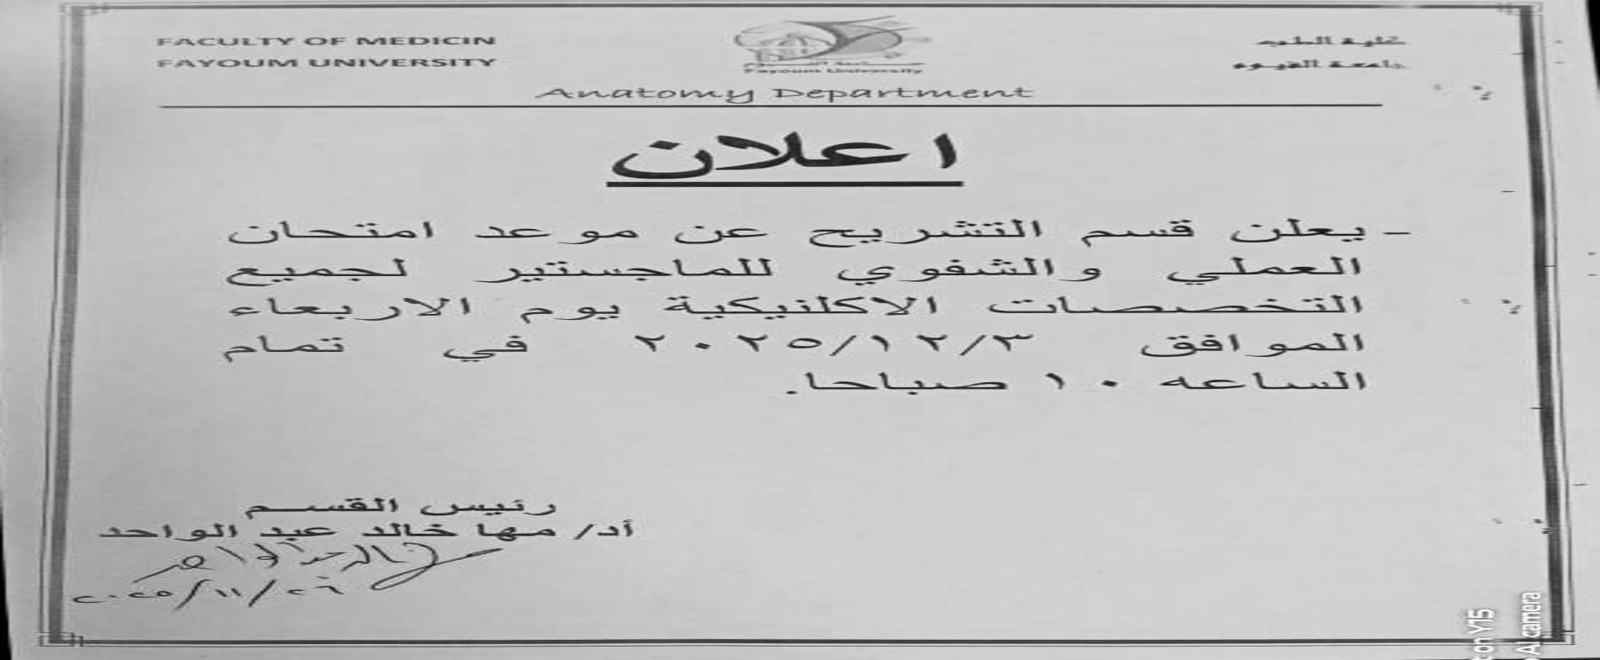 FACULTY OF MEDICIN
FAYOUM UNIVERSITY
Fayoum University
كلية الطب
جامعة الفيوم
Anatomy Department
اعلان
- يعلن قسم التشريح عن موعد امتحان
العملي والشفوي للماجستير لجميع
التخصصات الاكلنيكية يوم الاربعاء
الموافق ٢٠٢٥/١٢/٣ في تمام
الساعه ١٠ صباحا.
رئيس القسم
أد/ مها خالد عبد الواحد
٢٠٢٥/١١/٢٦
on Y15
AI camera